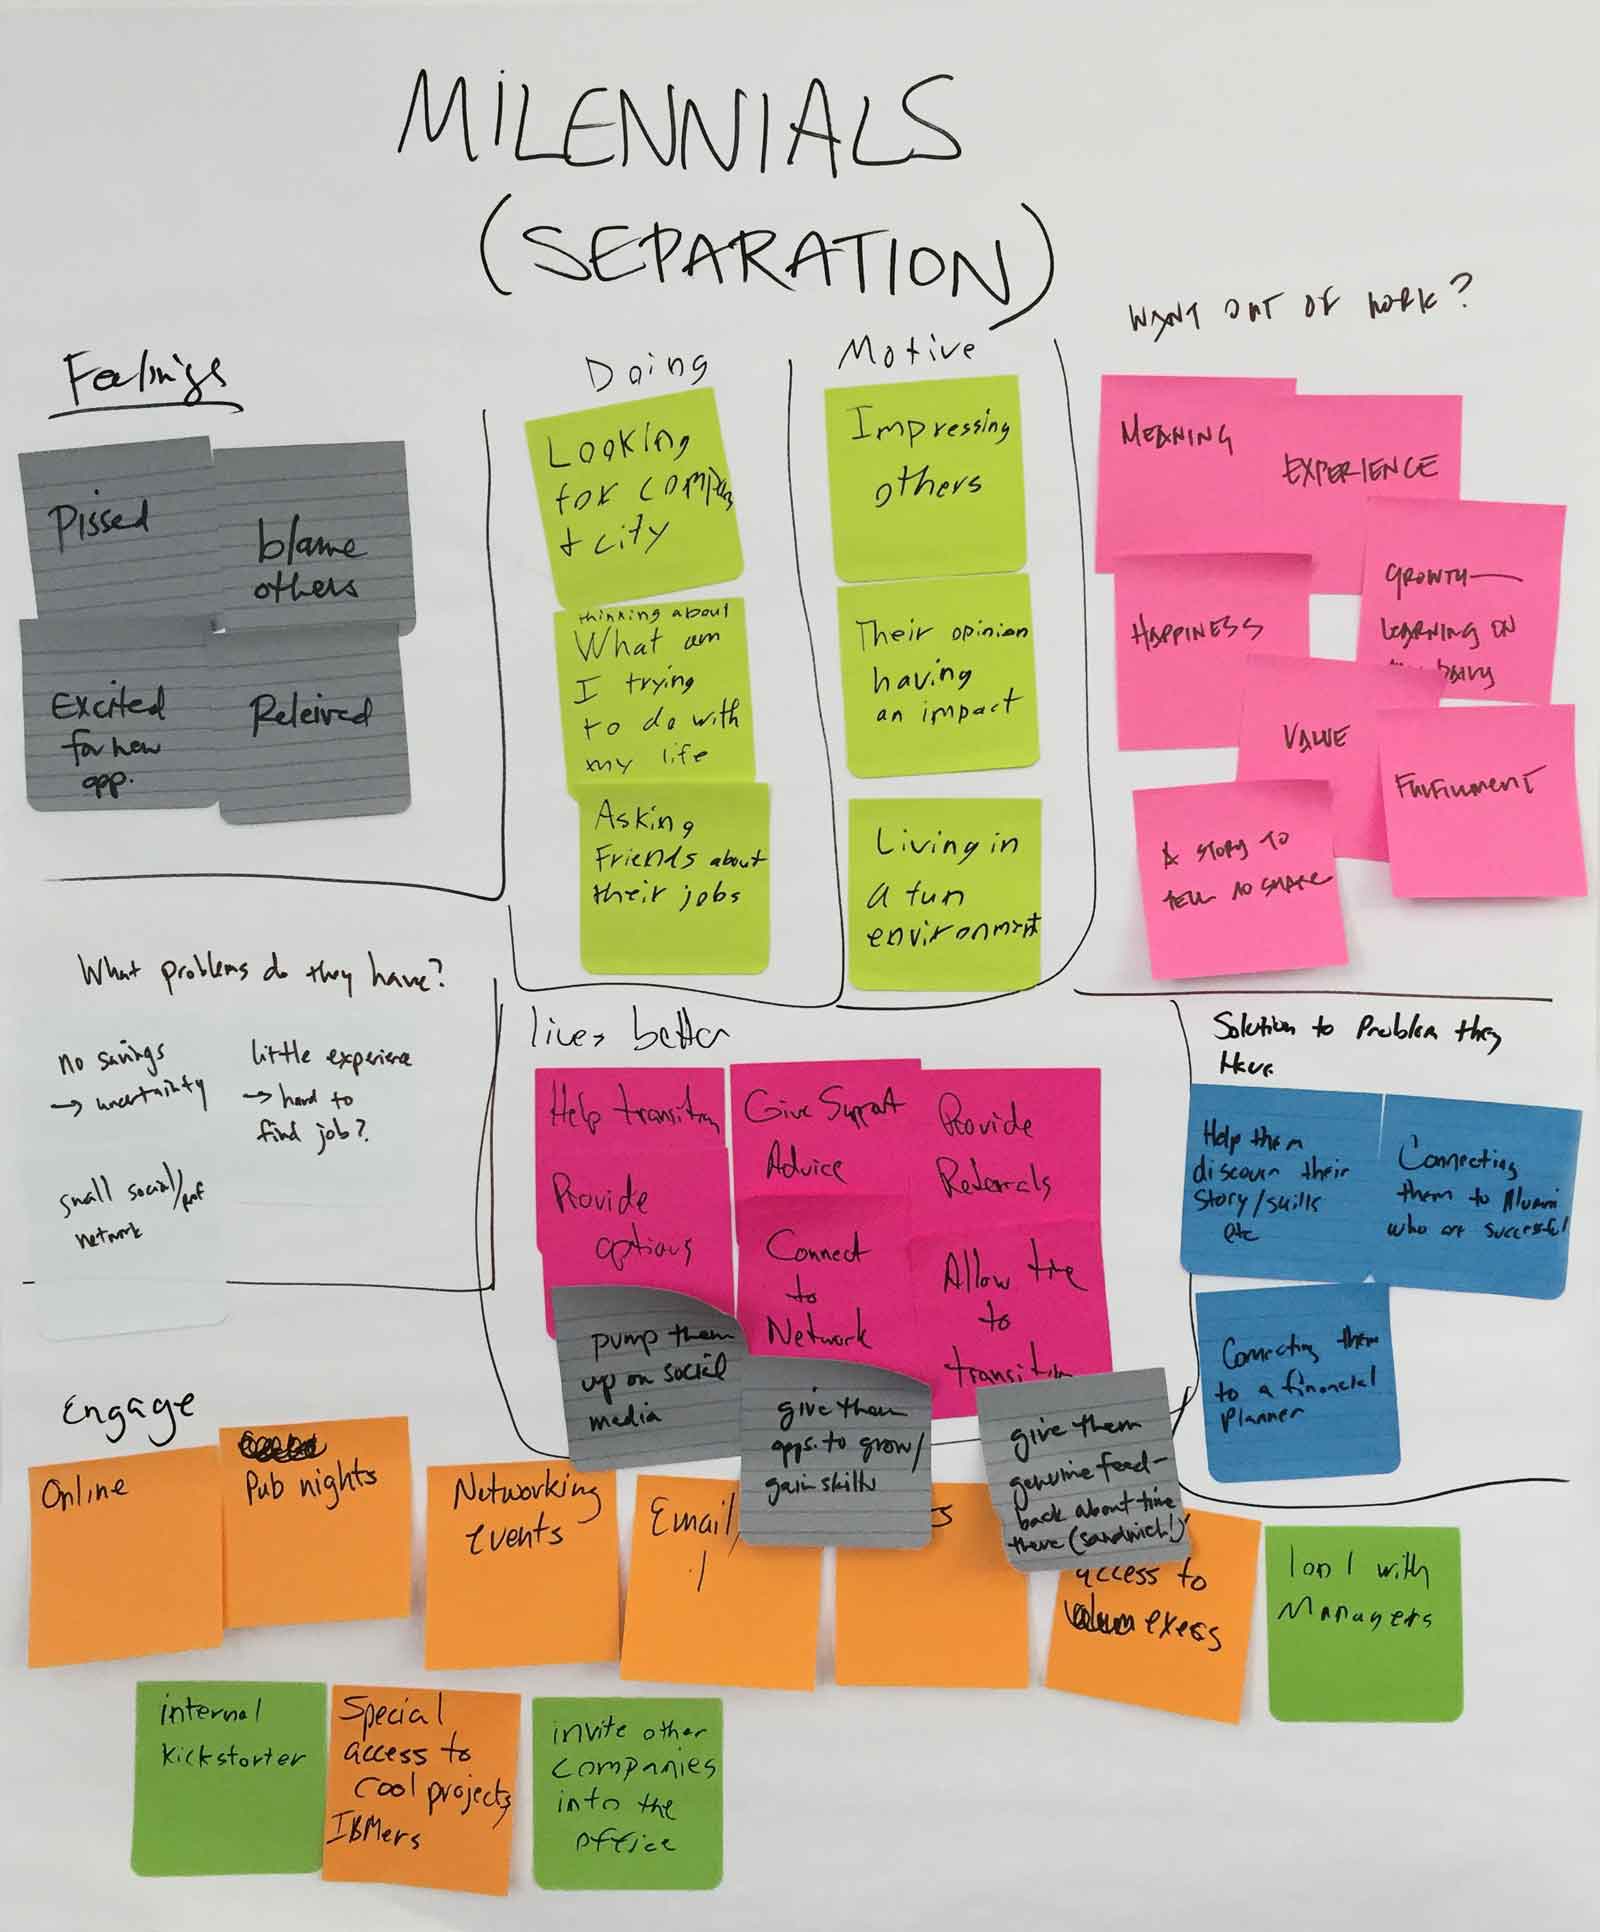 MILENNIALS
(SEPARATION)
Feelings
Pissed
blame
others
Excited
for new
opp.
Releived
Doing
Looking
for company
& city
thinking about
What am
I trying
to do with
my life
Asking
Friends about
their jobs
Motive
Impressing
others
Their opinion
having
an impact
Living in
a fun
environment
WANT OUT OF WORK?
MEANING
EXPERIENCE
GROWTH—
LEARNING ON
HAPPINESS
VALUE
FULFILLMENT
A STORY TO
TELL
SHARE
What problems do they have?
no savings
→ uncertainty
little experience
→ hard to
find job?
small social/prof
network
lives better
Help transition
Give Support
Advice
Provide
Referrals
Provide
options
Connect
to
Network
Allow time
to
transition
pump them
up on social
media
give them
opps. to grow/
gain skills
give them
genuine feed-
back about time
there (sandwich!)
Solution to Problem they
Have
Help them
discover their
story/skills
etc
Connecting
them to Alumni
who are successful
Connecting them
to a financial
planner
Engage
Online
Pub nights
Networking
events
Email
s
access to
execs
1 on 1 with
Managers
internal
kickstarter
Special
access to
cool projects
IBMers
invite other
companies
into the
office